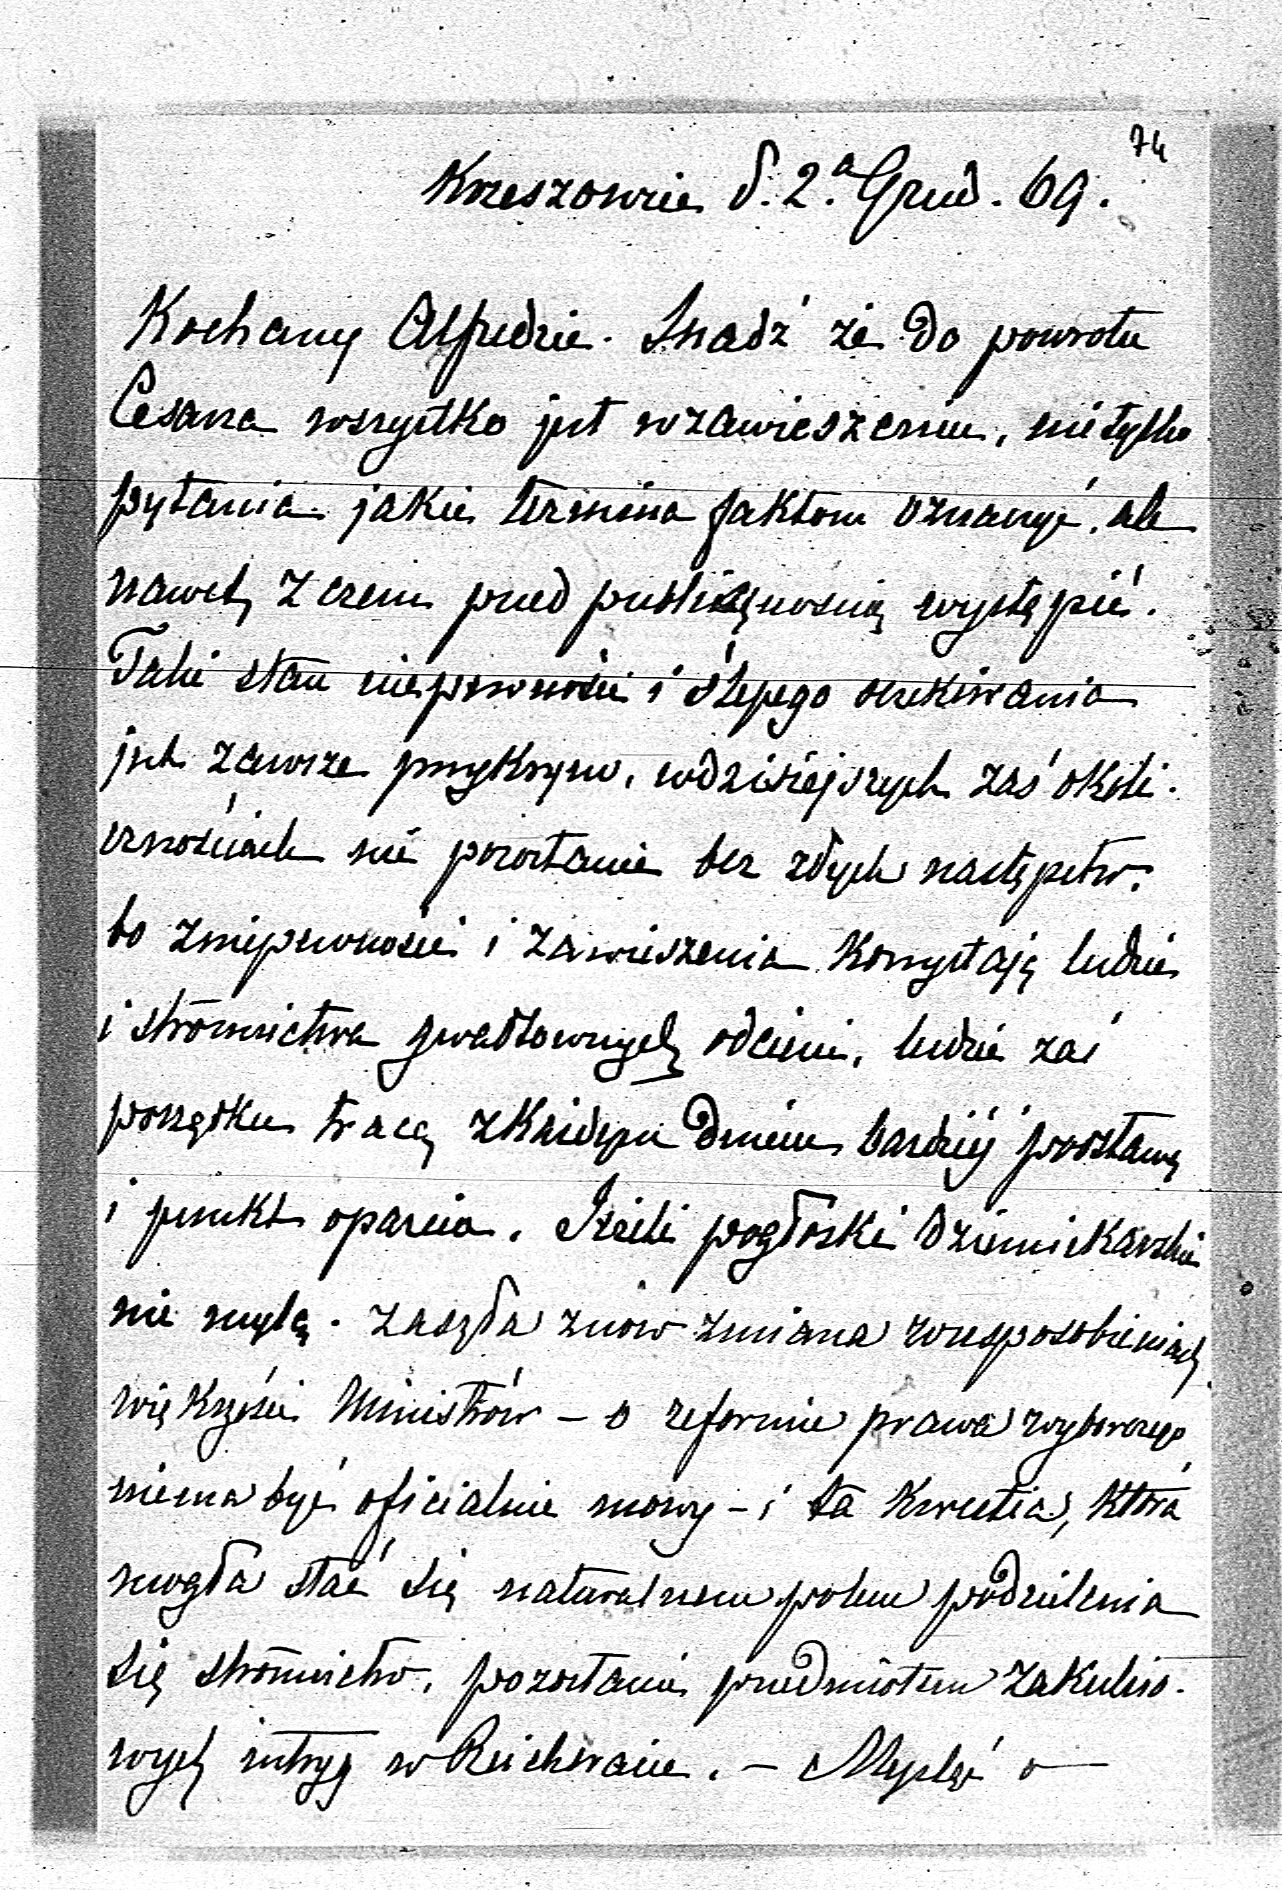 74
Krzeszowice d. 2.a Grud. 69.
Kochany Alfredzie. Snadź że do powrotu
Cesarza wszystko jest w zawieszeniu, nietylko
pytania jakie termina faktom oznaczyć, ale
nawet, z czem przed publicznością wystąpić.
Taki stan niepewności i ślepego oczekiwania
jest zawsze przykrym, w dzisiejszych zaś okoli-
cznościach nie pozostanie bez złych następstw.
bo z niepewności i zawieszenia korzystają ludzie
i stronnictwa gwałtownych odcieni, ludzie zaś
porządku tracą z każdym dniem bardziej podstawę
i punkt oparcia. Jeżeli pogłoski dziennikarskie
nie mylą - zaszła znow zmiana w usposobieniach
większości Ministrów - o reformie prawa wyborczego
niema być oficialnie mowy - i ta kwestia, która
mogła stać się naturalnem polem podzielenia
się stronnictw, pozostanie przedmiotem zakuliso-
wych intryg w Reichsracie. - Myśleć o